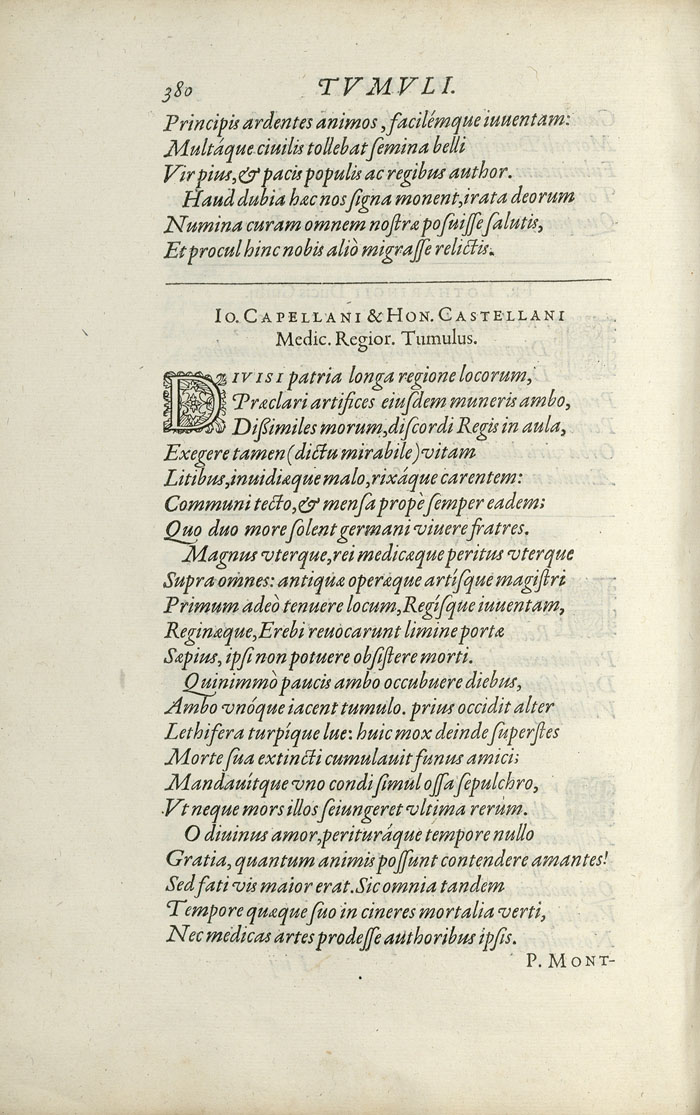 380 TVMVLI.
Principis ardentes animos, facilémque iuuentam:
Multáque ciuilis tollebat semina belli
Vir pius, & pacis populis ac regibus author.
Haud dubia hæc nos signa monent, irata deorum
Numina curam omnem nostræ posuisse salutis,
Et procul hinc nobis aliò migrasse relictis.
IO. CAPELLANI & HON. CASTELLANI
Medic. Regior. Tumulus.
DIVISI patria longa regione locorum,
Præclari artifices eiusdem muneris ambo,
Dißimiles morum, discordi Regis in aula,
Exegere tamen (dictu mirabile) vitam
Litibus, inuidiæque malo, rixáque carentem:
Communi tecto, & mensa propè semper eadem;
Quo duo more solent germani viuere fratres.
Magnus vterque, rei medicæque peritus vterque
Supra omnes: antiquæ operæque artísque magistri
Primum adeò tenuere locum, Regísque iuuentam,
Reginæque, Erebi reuocarunt limine portæ
Sæpius, ipsi non potuere obsistere morti.
Quinimmò paucis ambo occubuere diebus,
Ambo vnóque iacent tumulo. prius occidit alter
Lethifera turpíque lue: huic mox deinde superstes
Morte sua extincti cumulauit funus amici;
Mandauítque vno condi simul ossa sepulchro,
Vt neque mors illos seiungeret vltima rerum.
O diuinus amor, perituráque tempore nullo
Gratia, quantum animis possunt contendere amantes!
Sed fati vis maior erat. Sic omnia tandem
Tempore quæque suo in cineres mortalia verti,
Nec medicas artes prodesse authoribus ipsis.
P. MONT-